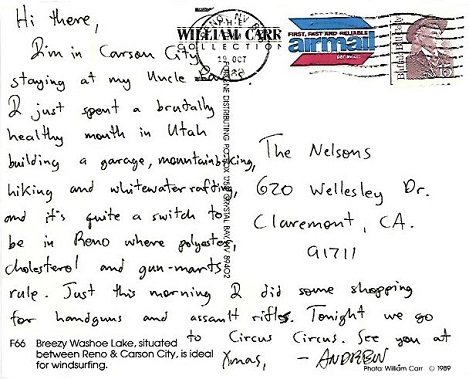 Hi there,
I'm in Carson City
staying at my Uncle
I just spent a brutally
healthy month in Utah
building a garage, mountainbiking,
hiking and whitewater rafting,
and it's quite a switch to
be in Reno where polyester,
cholesterol and gun-marts
rule. Just this morning I did some shopping
for handguns and assault rifles. Tonight we go
to Circus Circus. See you at
Xmas, - ANDREW
WILLIAM CARR
COLLECTION
19 OCT
FIRST, FAST AND RELIABLE
airmail
Buffalo Bill Cody
15
The Nelsons
620 Wellesley Dr.
Claremont, CA.
91711
DISTRIBUTING PO BOX CRYSTAL BAY, NV 89402
F66 Breezy Washoe Lake, situated
between Reno & Carson City, is ideal
for windsurfing.
Photo: William Carr © 1989